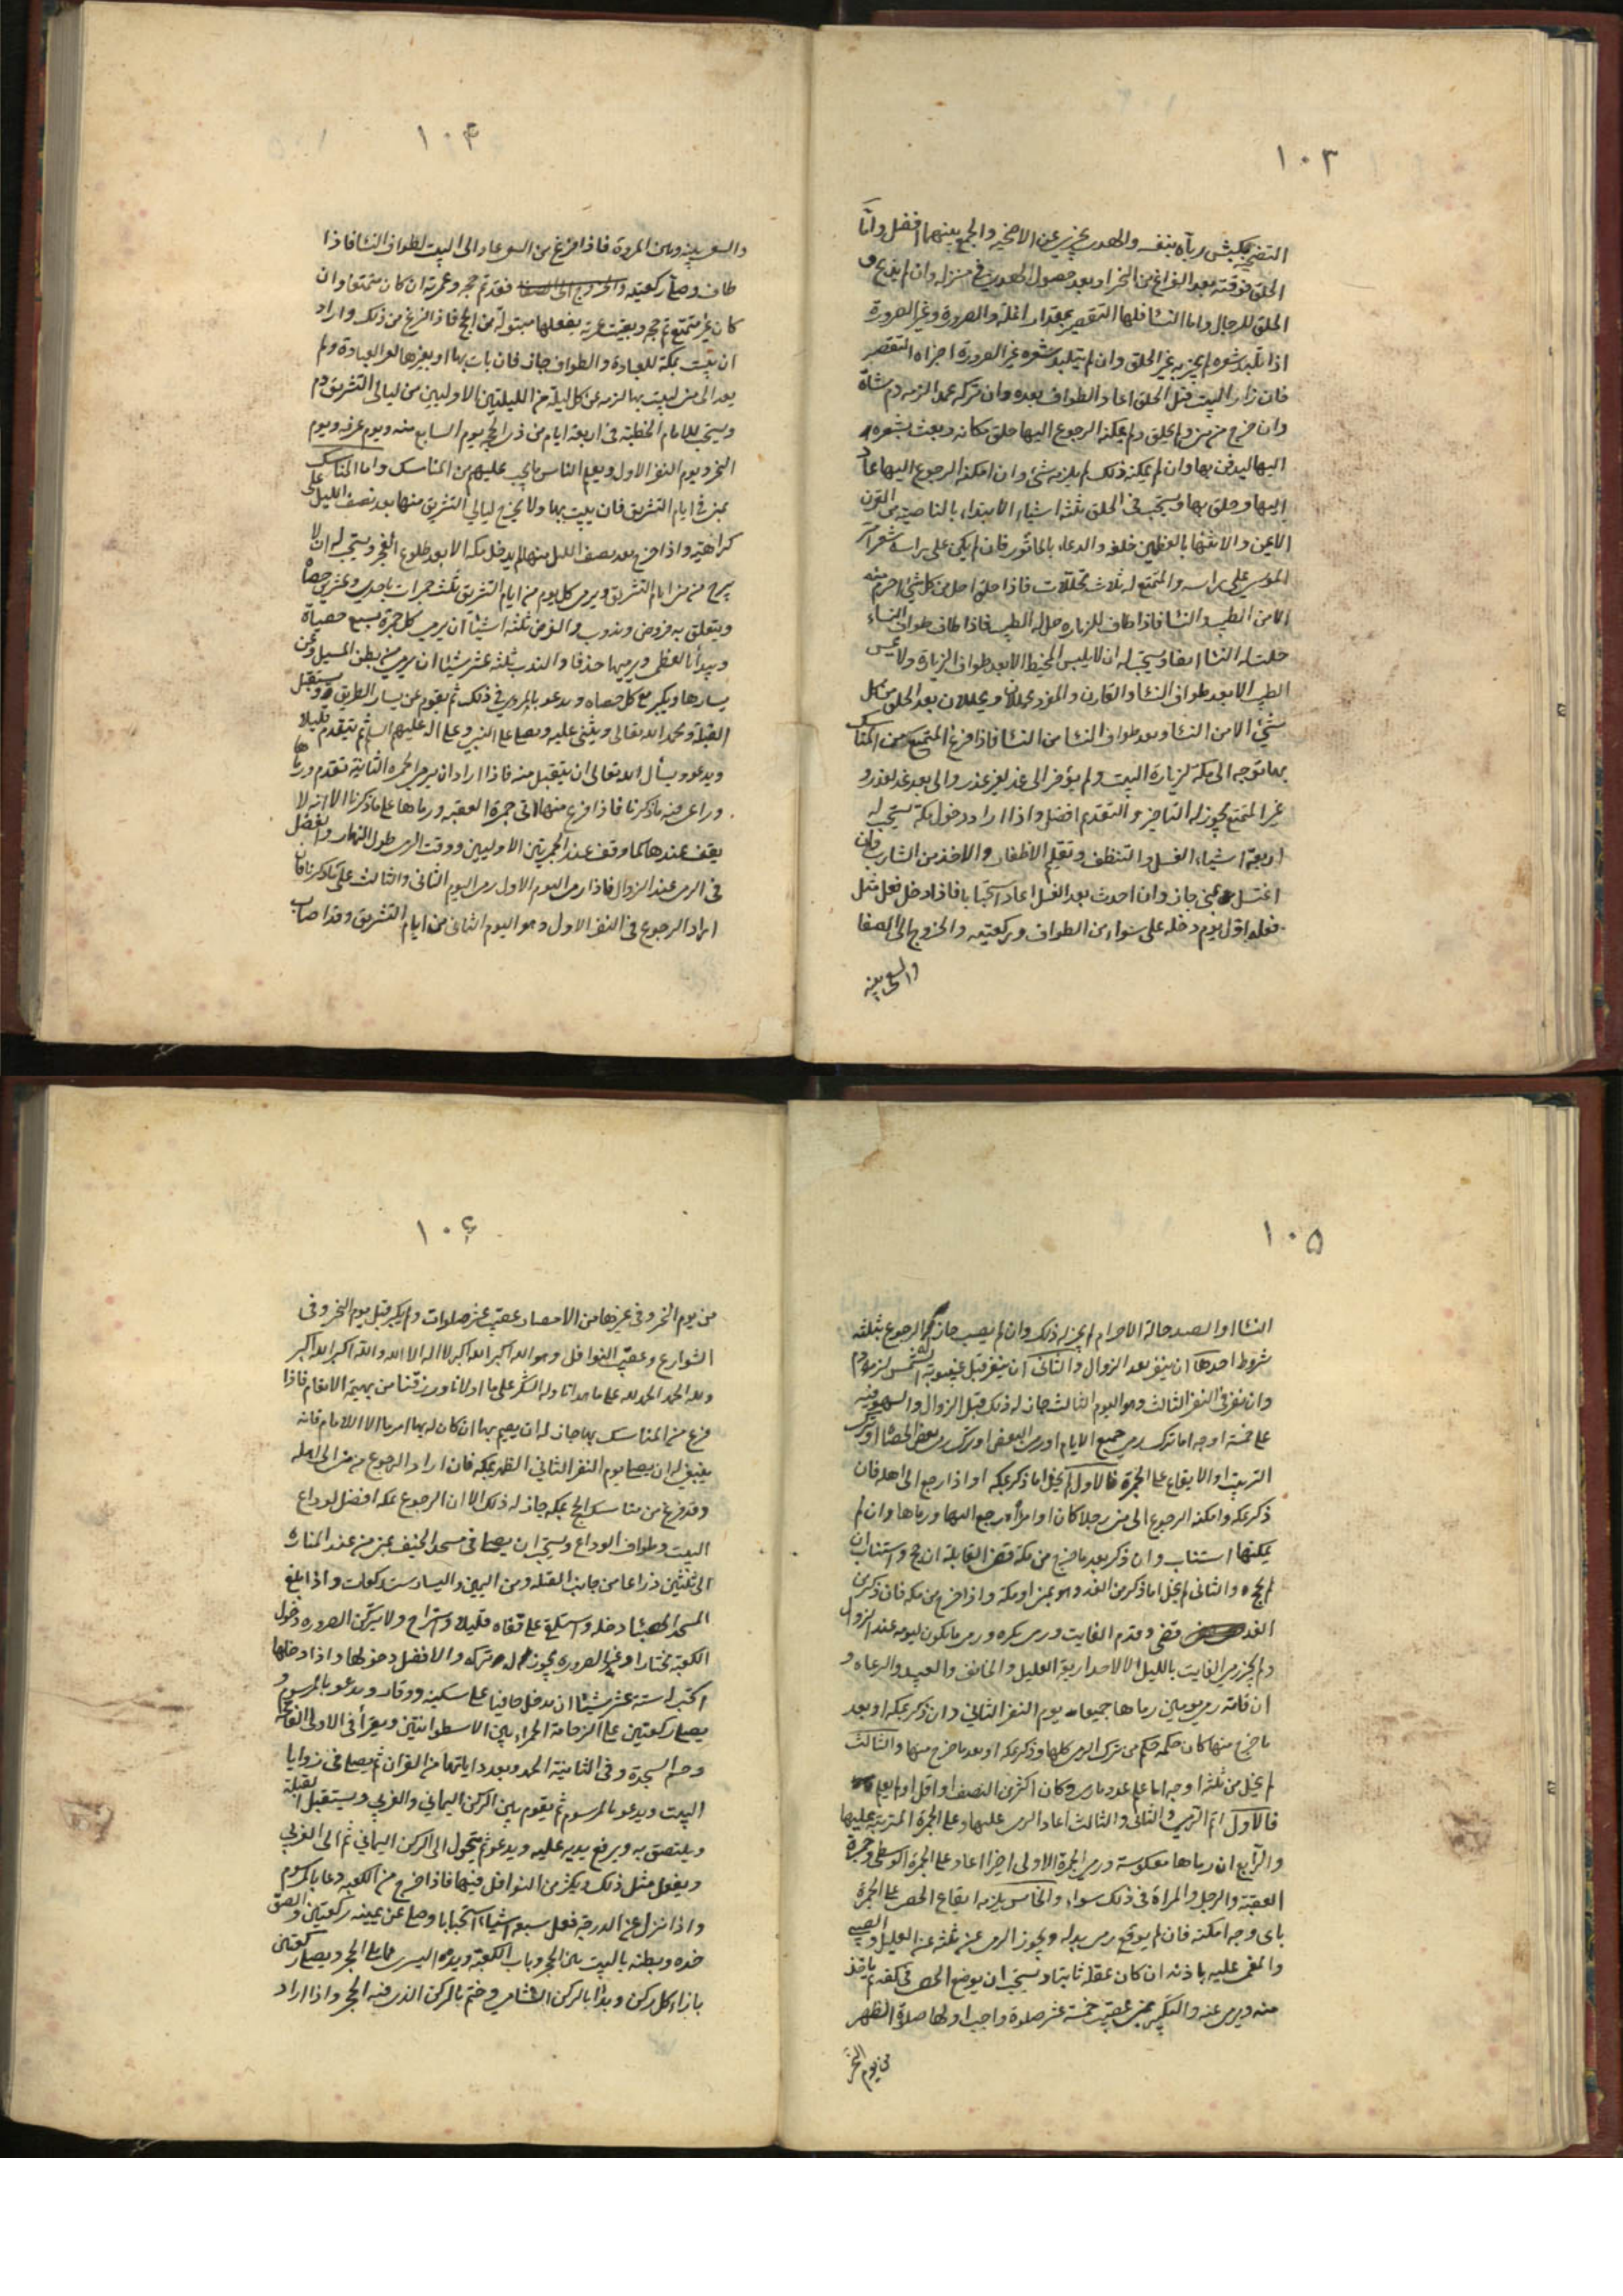 ١٠٣
التضحية بكبش رباه بنفسه والهدى يجزى عن الاضحية والجمع بينهما افضل واما
الحلق فوقته بعد الفراغ من النحر او بعد حصول الهدى فى منزله وان لم يذبح و
الحلق للرجال واما النسٓا فلها التقصير بمقدار انملة والصرورة وغير الصرورة
اذا تلبد شعره لم يجزيه غير الحلق وان لم يتلبد شعره غير الصرورة اجزاه التقصير
فان زار البيت قبل الحلق اعاد الطواف بعده وان تركه عمدا لزمه دم شاة
وان خرج من منى ولم يحلق ولم يمكنه الرجوع اليها حلق مكانه وبعث بشعره
اليها ليدفن بها وان لم يمكنه ذلك لم يلزمه شئ وان امكنه الرجوع اليها عاد
اليها وحلق بها ويستحب فى الحلق ثلثة اشياء الابتداء بالناصية من القرن
الايمن والانتهٓا بالعظمين خلفه والدعاء بالماثور فان لم يكن على راسه شعر امر
الموسى على راسه والمتمتع له ثلاث تحللات فاذا حلق احل من كل شئ احرم منه
الا من الطيب والنسٓا فاذا طاف للزياره حل له الطيب فاذا طاف طواف النساء
حلت له النسٓا ايضا ويستحب له ان لا يلبس المخيط الا بعد طواف الزيارة ولا يمس
الطيب الا بعد طواف النسٓا والقارن والمفرد يحللان ويحللان بعد الحلق من كل
شئ الا من النسٓا وبعد طواف النسٓا من النسٓا فاذا فرغ المتمتع من المناسك
بها توجه الى مكة لزيارة البيت ولم يؤخر الى غد لغير عذر والى بعد غد لعذر و
غير المتمتع يجوز له التاخير والتقدم افضل واذا اراد دخول مكة يستحب له
اربعة اشياء الغسل والتنظف وتقليم الاظفار والاخذ من الشارب فان
اغتسل بمنى جاز وان احدث بعد الغسل اعاد استحبابا فاذا دخل فعل مثل
فعله اول يوم دخله على سواء من الطواف وركعتيه والخروج الى الصفا
والسعى بينه
١٠۴
والسعى بينه وبين المروة فاذا فرغ من السعى عاد الى البيت لطواف النسٓا فاذا
طاف وصلى ركعتيه والخروج الى الصفا فقد تم حجه وعمرته ان كان متمتعا وان
كان غير متمتع تم حجه وبقيت عمرته يفعلها مبتولة من الحج فاذا فرغ من ذلك واراد
ان يبيت بمكة للعبادة والطواف جاز فان بات بها او بغيرها لغير العبادة ولم
يعد الى منى ليبيت بها لزمه عن كل ليلة من الليلتين الاوليين من ليالى التشريق دم
ويستحب للامام الخطبة فى اربعة ايام من ذى الحجة يوم السابع منه ويوم عرفه ويوم
النحر ويوم النفر الاول ويعلم الناس ما يجب عليهم من المناسك واما المناسك
بمنى فى ايام التشريق فان يبيت بها ولا يخرج ليالى التشريق منها بعد نصف الليل على
كراهية واذا خرج بعد نصف الليل منها لم يدخل مكة الا بعد طلوع الفجر ويستحب له ان لا
يبرح من منى ايام التشريق ويرمى كل يوم من ايام التشريق ثلث جمرات باحدى وعشرين حصاه
ويتعلق به فروض وندوب والفرض ثلثة اشيٓا ان يرمى كل جمرة بسبع حصياة
ويبدأ بالعظمى ويرميها حذفا والندب ثلثة عشر شيئا ان يرمى من بطن المسيل وعن
يسارها ويكبر مع كل حصاه ويدعو بالمروى فى ذلك ثم يقوم عن يسار الطريق ويستقبل
القبلة ويحمد الله تعالى ويثنى عليه ويصلى على النبى وعلى اله عليهم السلم ثم يتقدم قليلا
ويدعو ويسأل الله تعالى ان يتقبل منه فاذا اراد ان يرمى الجمرة الثانية تقدم ورماها
وراعى فيه ما ذكرنا فاذا فرغ منها اتى جمرة العقبة ورماها على ما ذكرنا الا انه لا
يقف عندها كما وقف عند الجمرتين الاوليين ووقت الرمى طول النهار والفضل
فى الرمى عند الزوال فاذا رمى اليوم الاول رمى اليوم الثانى والثالث على ما ذكرنا فان
اراد الرجوع فى النفر الاول وهو اليوم الثانى من ايام التشريق وقد اصاب
١٠۵
النسٓا او الصيد حالة الاحرام لم يجز له ذلك وان لم يصب جاز له الرجوع بثلثة
شروط احدها ان ينفر بعد الزوال والثانى ان ينفر قبل غيبوبة الشمس لزمه دم
وان نفر فى النفر الثالث وهو اليوم الثالث جاز له ذلك قبل الزوال والسهو فيه
على خمسة اوجه اما ترك رمى جميع الايام او رمى البعض او ترك رمى بعض الحصٓا او ترك
الترتيب او الايقاع على الجمرة فالاول لم يخل اما ذكر بمكه او اذا رجع الى اهله فان
ذكر بمكه وامكنه الرجوع الى منى رجلا كان او امرأه رجع اليها ورماها وان لم
يمكنها استناب وان ذكر بعد ما خرج من مكة قضى القابلة ان حج واستناب ان
لم يحج والثانى لم يخل اما ذكر من الغد وهو بمنى او مكة واذا خرج من مكه فان ذكر من
الغد قضى وقدم الفايت ورمى بكره ورمى ما يكون ليومه عند الزوال
ولم يجز رمى الفايت بالليل الا لاحد اربعة العليل والخائف والعبيد والرعاه و
ان فاته رمى يومين رماها جميعا يوم النفر الثانى وان ذكر بمكه او بعد
ما خرج منها كان حكمه حكم من ترك الرمى كلها وذكر بمكه او بعد ما خرج منها والثالث
لم يخل من ثلثة اوجه اما علم عدد ما رمى وكان اكثر من النصف او اقل او لم يعلم
فالاول اتم الرمى والثانى والثالث اعاد الرمى عليها وعلى الجمرة المترتبة عليها
والرابع ان رماها معكوسة ورمى الجمرة الاولى اخرا اعاد على الجمرة الوسطى وجمرة
العقبة والرجل والمراة فى ذلك سواء والخامس يلزمه ايقاع الحصى على الجمرة
باى وجه امكنه فان لم يوقع رمى بدله ويجوز الرمى عن ثلثة عن العليل والصبى
والمغمى عليه باذنه ان كان عقله ثابتا ويستحب ان يوضع الحصى فى كفه ثم ياخذ
منه ويرمى عنه والتكبير بمنى عقيب خمسة عشر صلوة واجب اولها صلوة الظهر
من يوم النحر
١٠۶
من يوم النحر وفى غيرها من الامصار عقيب عشر صلوات ولم يكبر قبل يوم النحر وفى
الشوارع وعقيب النوافل وهو الله اكبر الله اكبر لا اله الا الله والله اكبر الله اكبر
ولله الحمد الحمد لله على ما هدانا وله الشكر على ما اولانا ورزقنا من بهيمة الانعام فاذا
فرغ من المناسك بها جاز له ان يقيم بها ان كان له بها امر ما الا الامام فانه
ينبغى له ان يصلى يوم النفر الثانى الظهر بمكه فان اراد الرجوع من منى الى اهله
وقد فرغ من مناسك الحج بمكه جاز له ذلك الا ان الرجوع مكه افضل لوداع
البيت وطواف الوداع ويستحب ان يصلى فى مسجد الخيف بمنى من عند المناره
الى ثلثين ذراعا من جانب القبلة ومن اليمين واليسار ست ركعات واذا بلغ
المسجد الحصبٓا دخله واستلقى على قفاه قليلا واستراح ولا يتركن الصروره دخول
الكعبة مختارا وغير الصروره يجوز له تركه والافضل دخولها واذا دخلها
استحب له ستة عشر شيئا ان يدخل حافيا على سكينه ووقار ويدعو بالمرسوم و
يصلى ركعتين على الرخامة الحمراء بين الاسطوانتين ويقرأ فى الاولى الفاتحة
وحم السجدة وفى الثانية الحمد وبعدد اياتها من القران ثم يصلى فى زوايا
البيت ويدعو بالمرسوم ثم يقوم بين الركن اليمانى والغربى ويستقبل القبلة
ويلتصق به ويرفع يديه عليه ويدعو ثم يتحول الى الركن اليمانى ثم الى الغربى
ويفعل مثل ذلك ويكثر من النوافل فيها فاذا خرج من الكعبة دعا بالمرسوم
واذا نزل عن الدرجة فعل سبعه اشياء استحبابا وصلى عن يمينه ركعتين والصق
خده وبطنه بالبيت بين الحجر وباب الكعبة ويده اليسرى مما يلى الحجر ويصلى ركعتين
بازاء كل ركن وبدٓا بالركن الشامى وختم بالركن الذى فيه الحجر واذا اراد